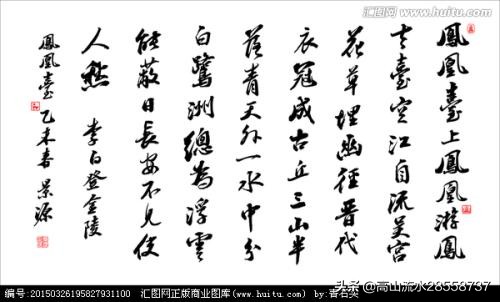 汇图网
www.huitu.com
鳳凰臺上鳳凰游鳳
去臺空江自流吴宫
花草埋幽徑晋代
衣冠成古丘三山半
落青天外一水中分
白鷺洲總為浮雲
能蔽日長安不見使
人愁 李白登金陵
鳳凰臺 乙未春 景源
编号:20150326195827931100 汇图网正版商业图库(www.huitu.com) by:
头条@高山流水28558737